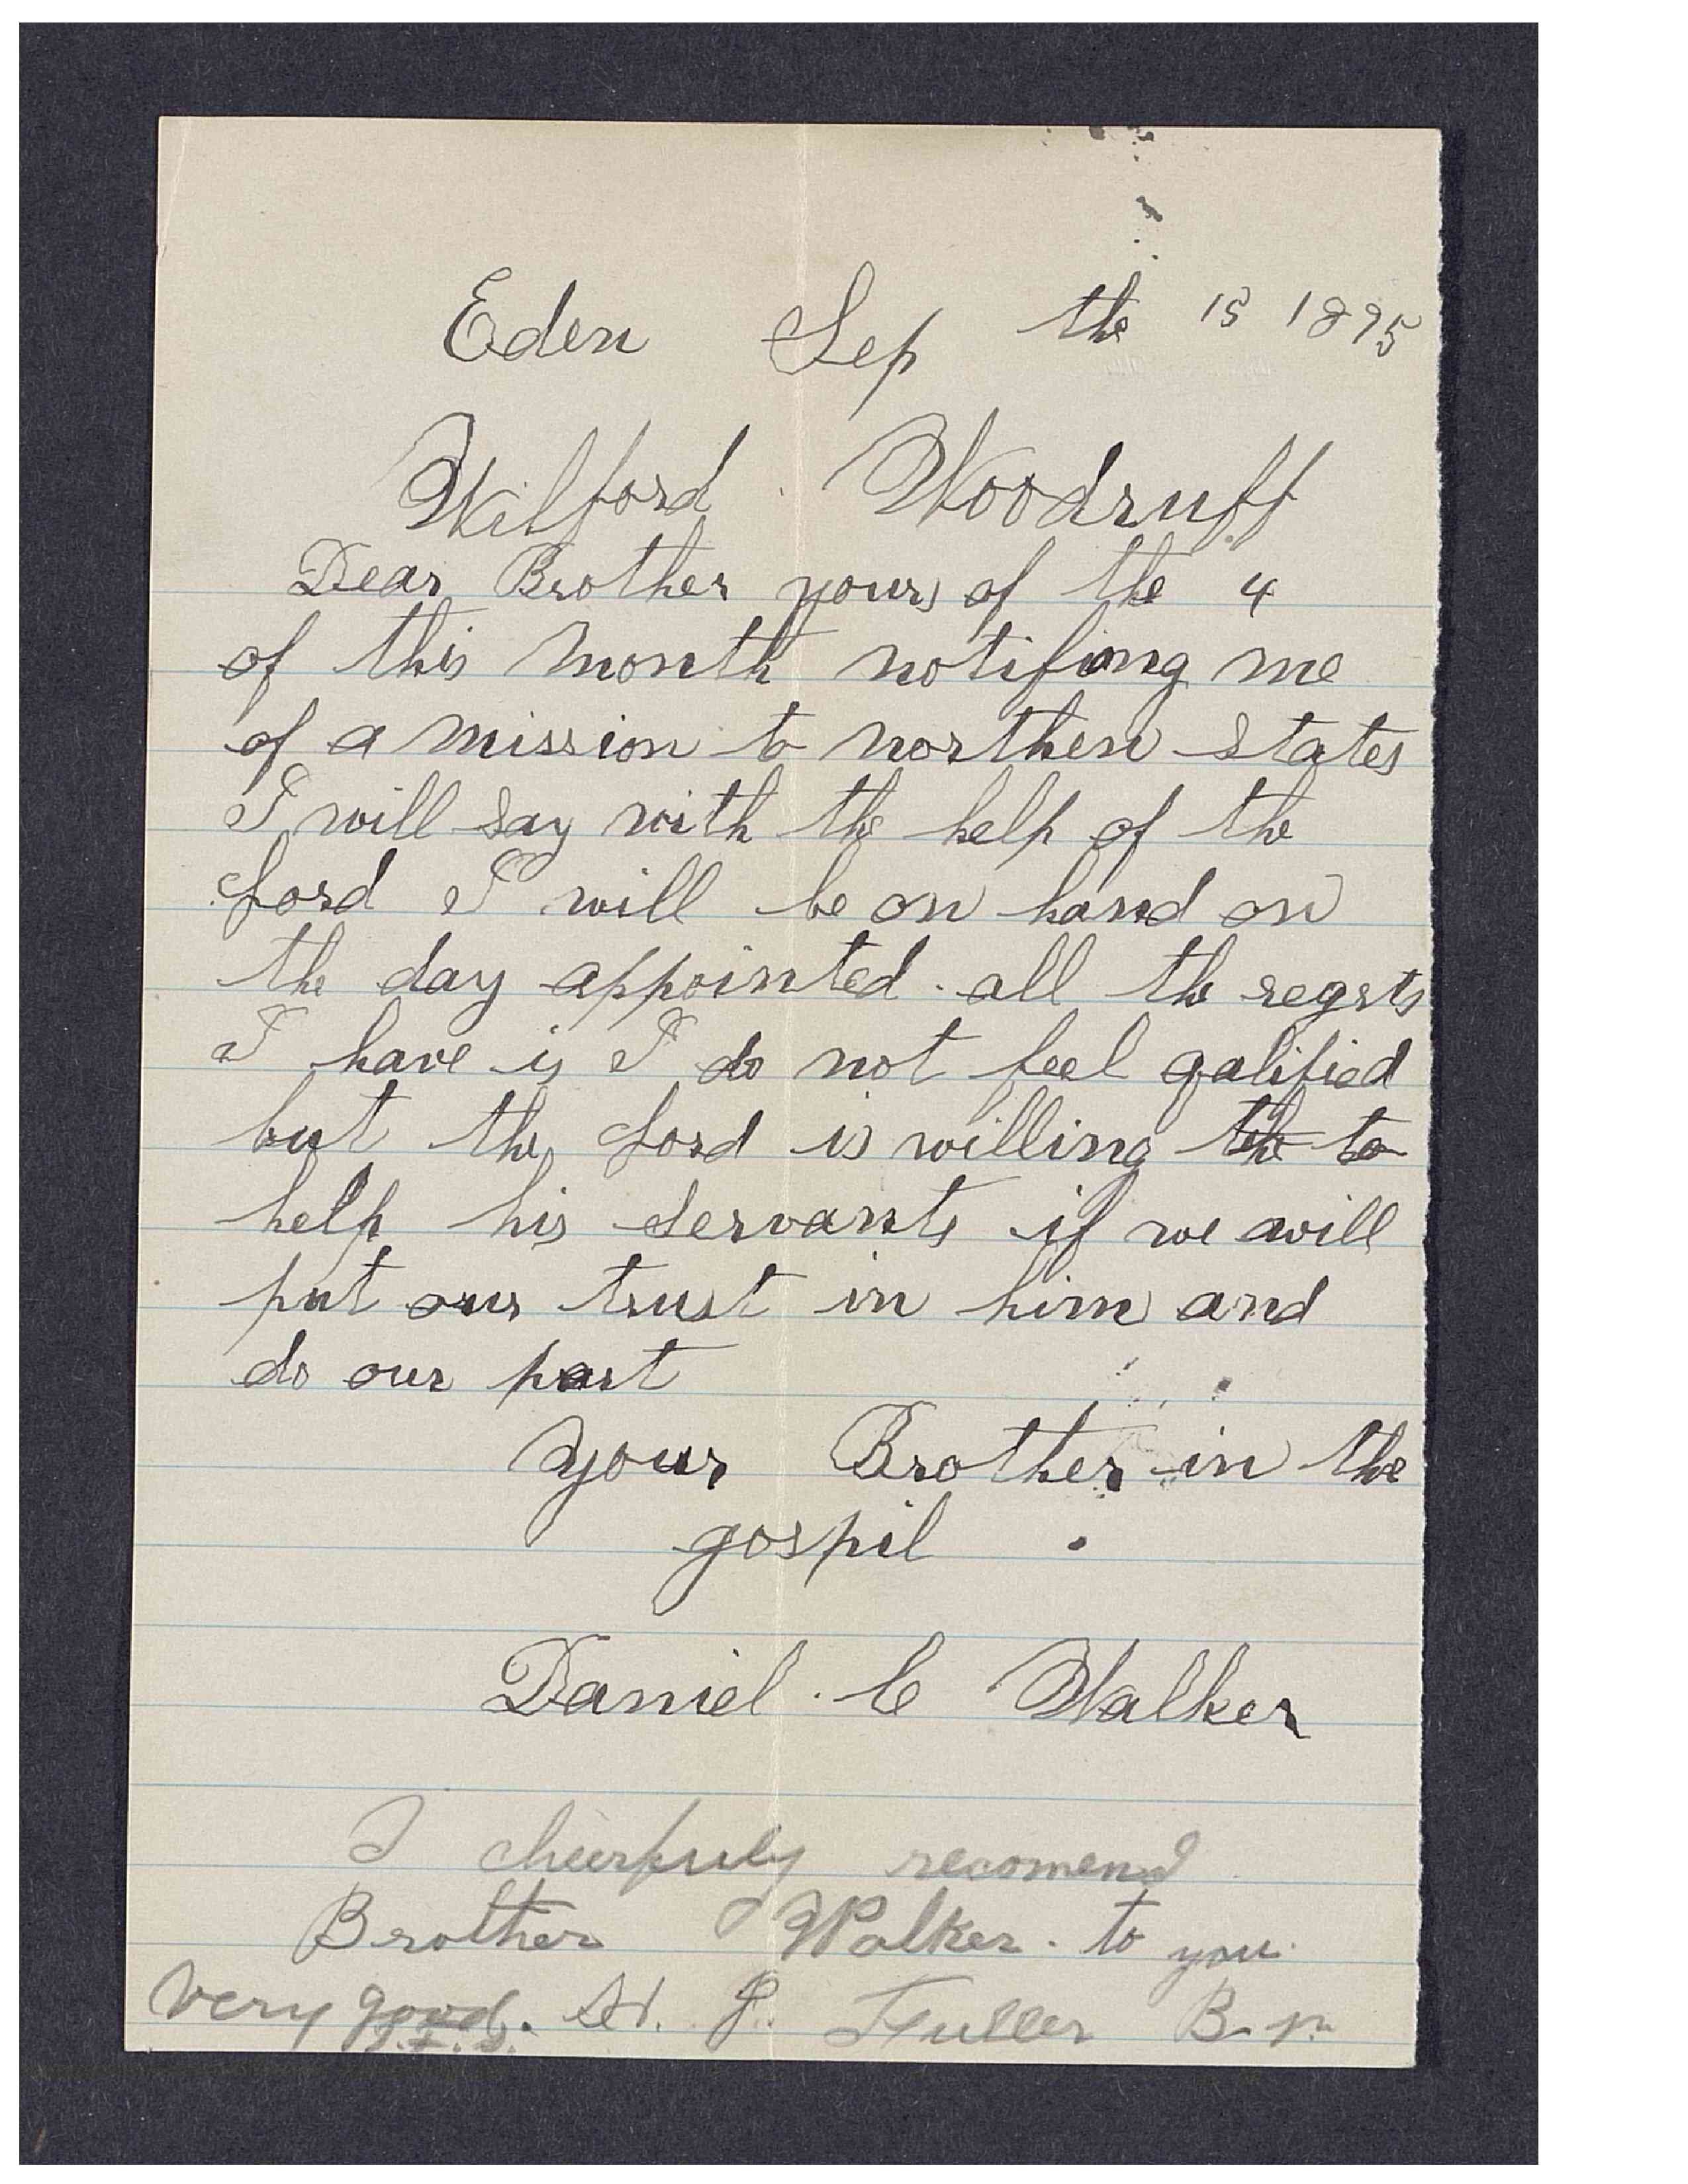 Eden Sep the 15 1895
Wilford Woodruff
Dear Brother yours of the 4
of this month notifing me
of a mission to northen states
I will say with the help of the
Lord I will be on hand on
the day appointed. all the regrts
I have is I do not feel qalified
but the Lord is willing the to
help his servants if we will
put our trust in him and
do our part
your Brother in the
gospil
Daniel C Walker
I cheerfuly recomend
Brother Walker. to you
Very good. J.F.S. J. Fuller Bp